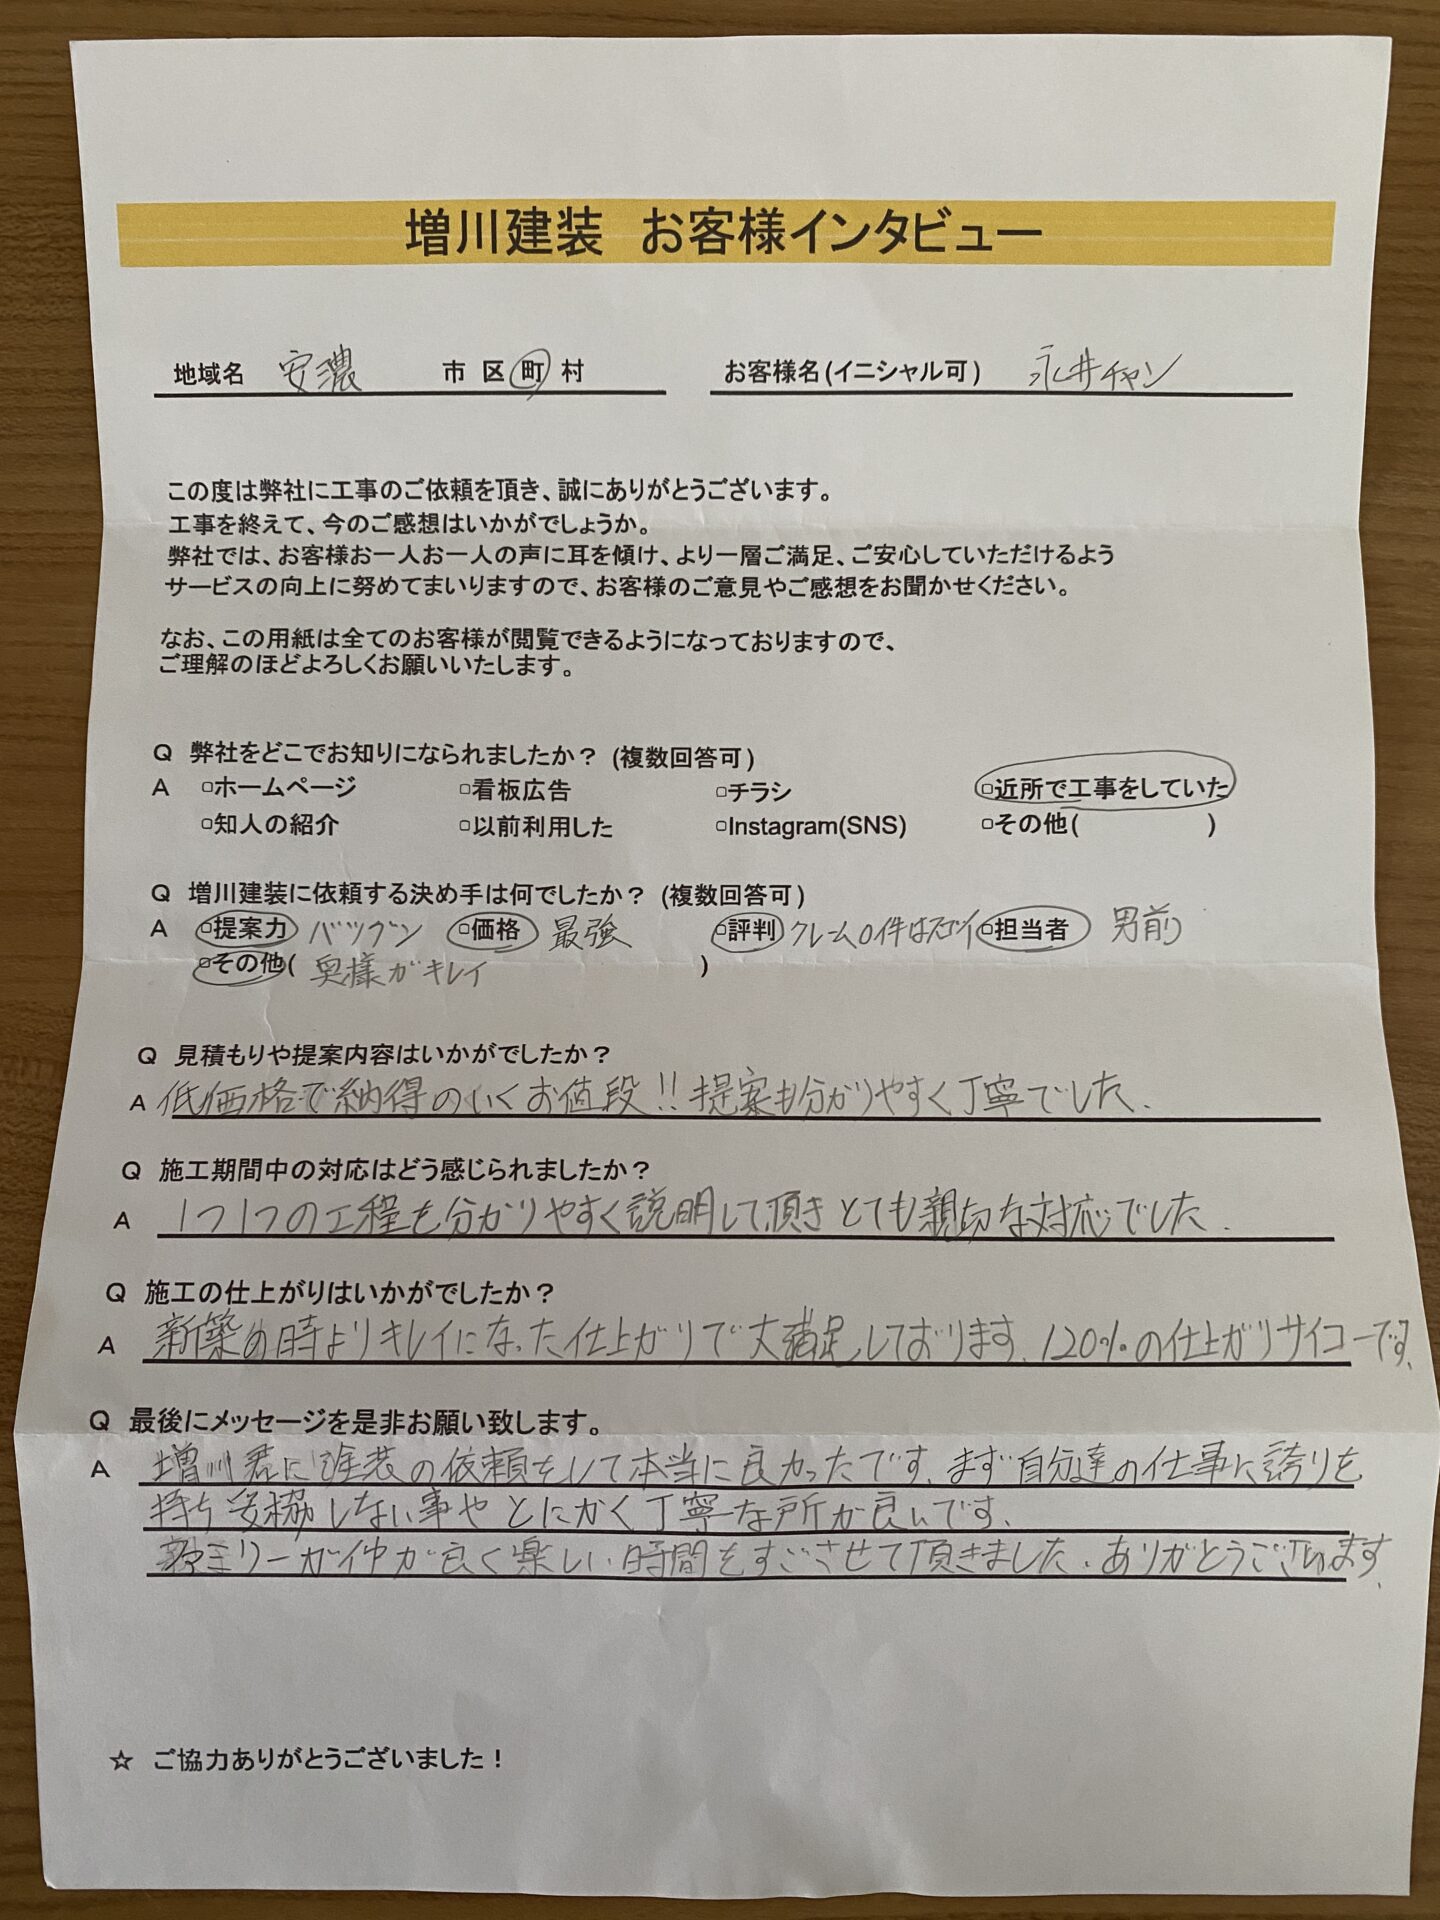 増川建装 お客様インタビュー
地域名 安濃 市 区 町 村 お客様名(イニシャル可) 永井チャン
この度は弊社に工事のご依頼を頂き、誠にありがとうございます。
工事を終えて、今のご感想はいかがでしょうか。
弊社では、お客様お一人お一人の声に耳を傾け、より一層ご満足、ご安心していただけるよう
サービスの向上に努めてまいりますので、お客様のご意見やご感想をお聞かせください。
なお、この用紙は全てのお客様が閲覧できるようになっておりますので、
ご理解のほどよろしくお願いいたします。
Q 弊社をどこでお知りになられましたか？ (複数回答可)
A □ホームページ □看板広告 □チラシ □近所で工事をしていた
□知人の紹介 □以前利用した □Instagram(SNS) □その他( )
Q 増川建装に依頼する決め手は何でしたか？ (複数回答可)
A □提案力 バツグン □価格 最強 □評判 クレーム0件はスゴイ □担当者 男前
□その他( 奥様がキレイ )
Q 見積もりや提案内容はいかがでしたか？
A 低価格で納得のいくお値段!! 提案も分かりやすく丁寧でした.
Q 施工期間中の対応はどう感じられましたか？
A 1つ1つの工程も分かりやすく説明して頂きとても親切な対応でした.
Q 施工の仕上がりはいかがでしたか？
A 新築の時よりキレイになった仕上がりで大満足しております、120%の仕上がりサイコーです、
Q 最後にメッセージを是非お願い致します。
A 増川君に塗装の依頼をして本当に良かったです、まず自分達の仕事に誇りを
持ち妥協しない事やとにかく丁寧な所が良いです、
ミリーが仲が良く楽しい時間をすごさせて頂きました、ありがとうございます、
☆ ご協力ありがとうございました！